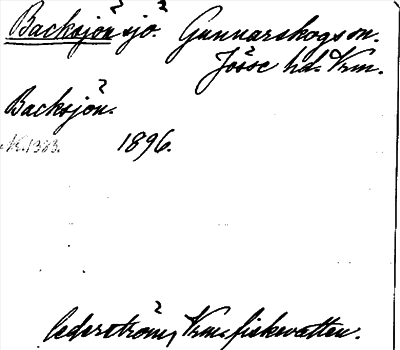 Backsjön sjö. Gunnarskogs sn.
Jösse hd. Vrm.
Backsjön.
N. 1383. 1896.
Cederström, Vrm. fiskevatten.